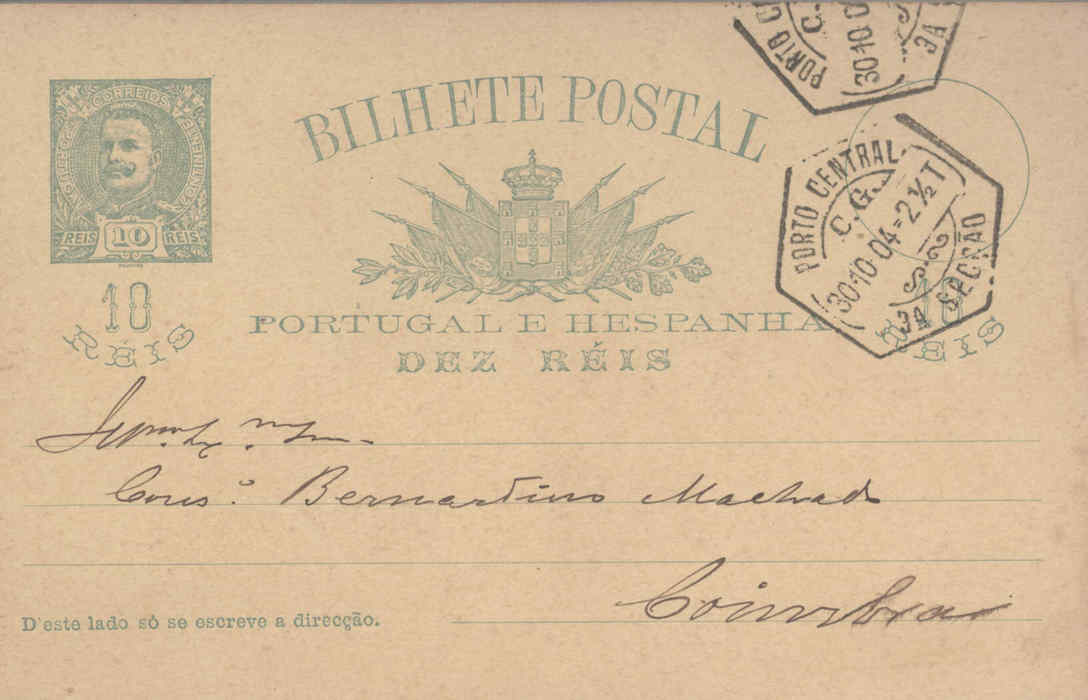 CORREIOS
REIS 10 REIS
10
RÉIS
BILHETE POSTAL
PORTUGAL E HESPANHA
DEZ RÉIS
10
RÉIS
PORTO C
C.
30·10·0
S
3A
PORTO CENTRAL
C.G.
30·10·04·2½T
S·2
3A SECÇÃO
Cons.º Bernardino Machado
Coimbra
D'este lado só se escreve a direcção.